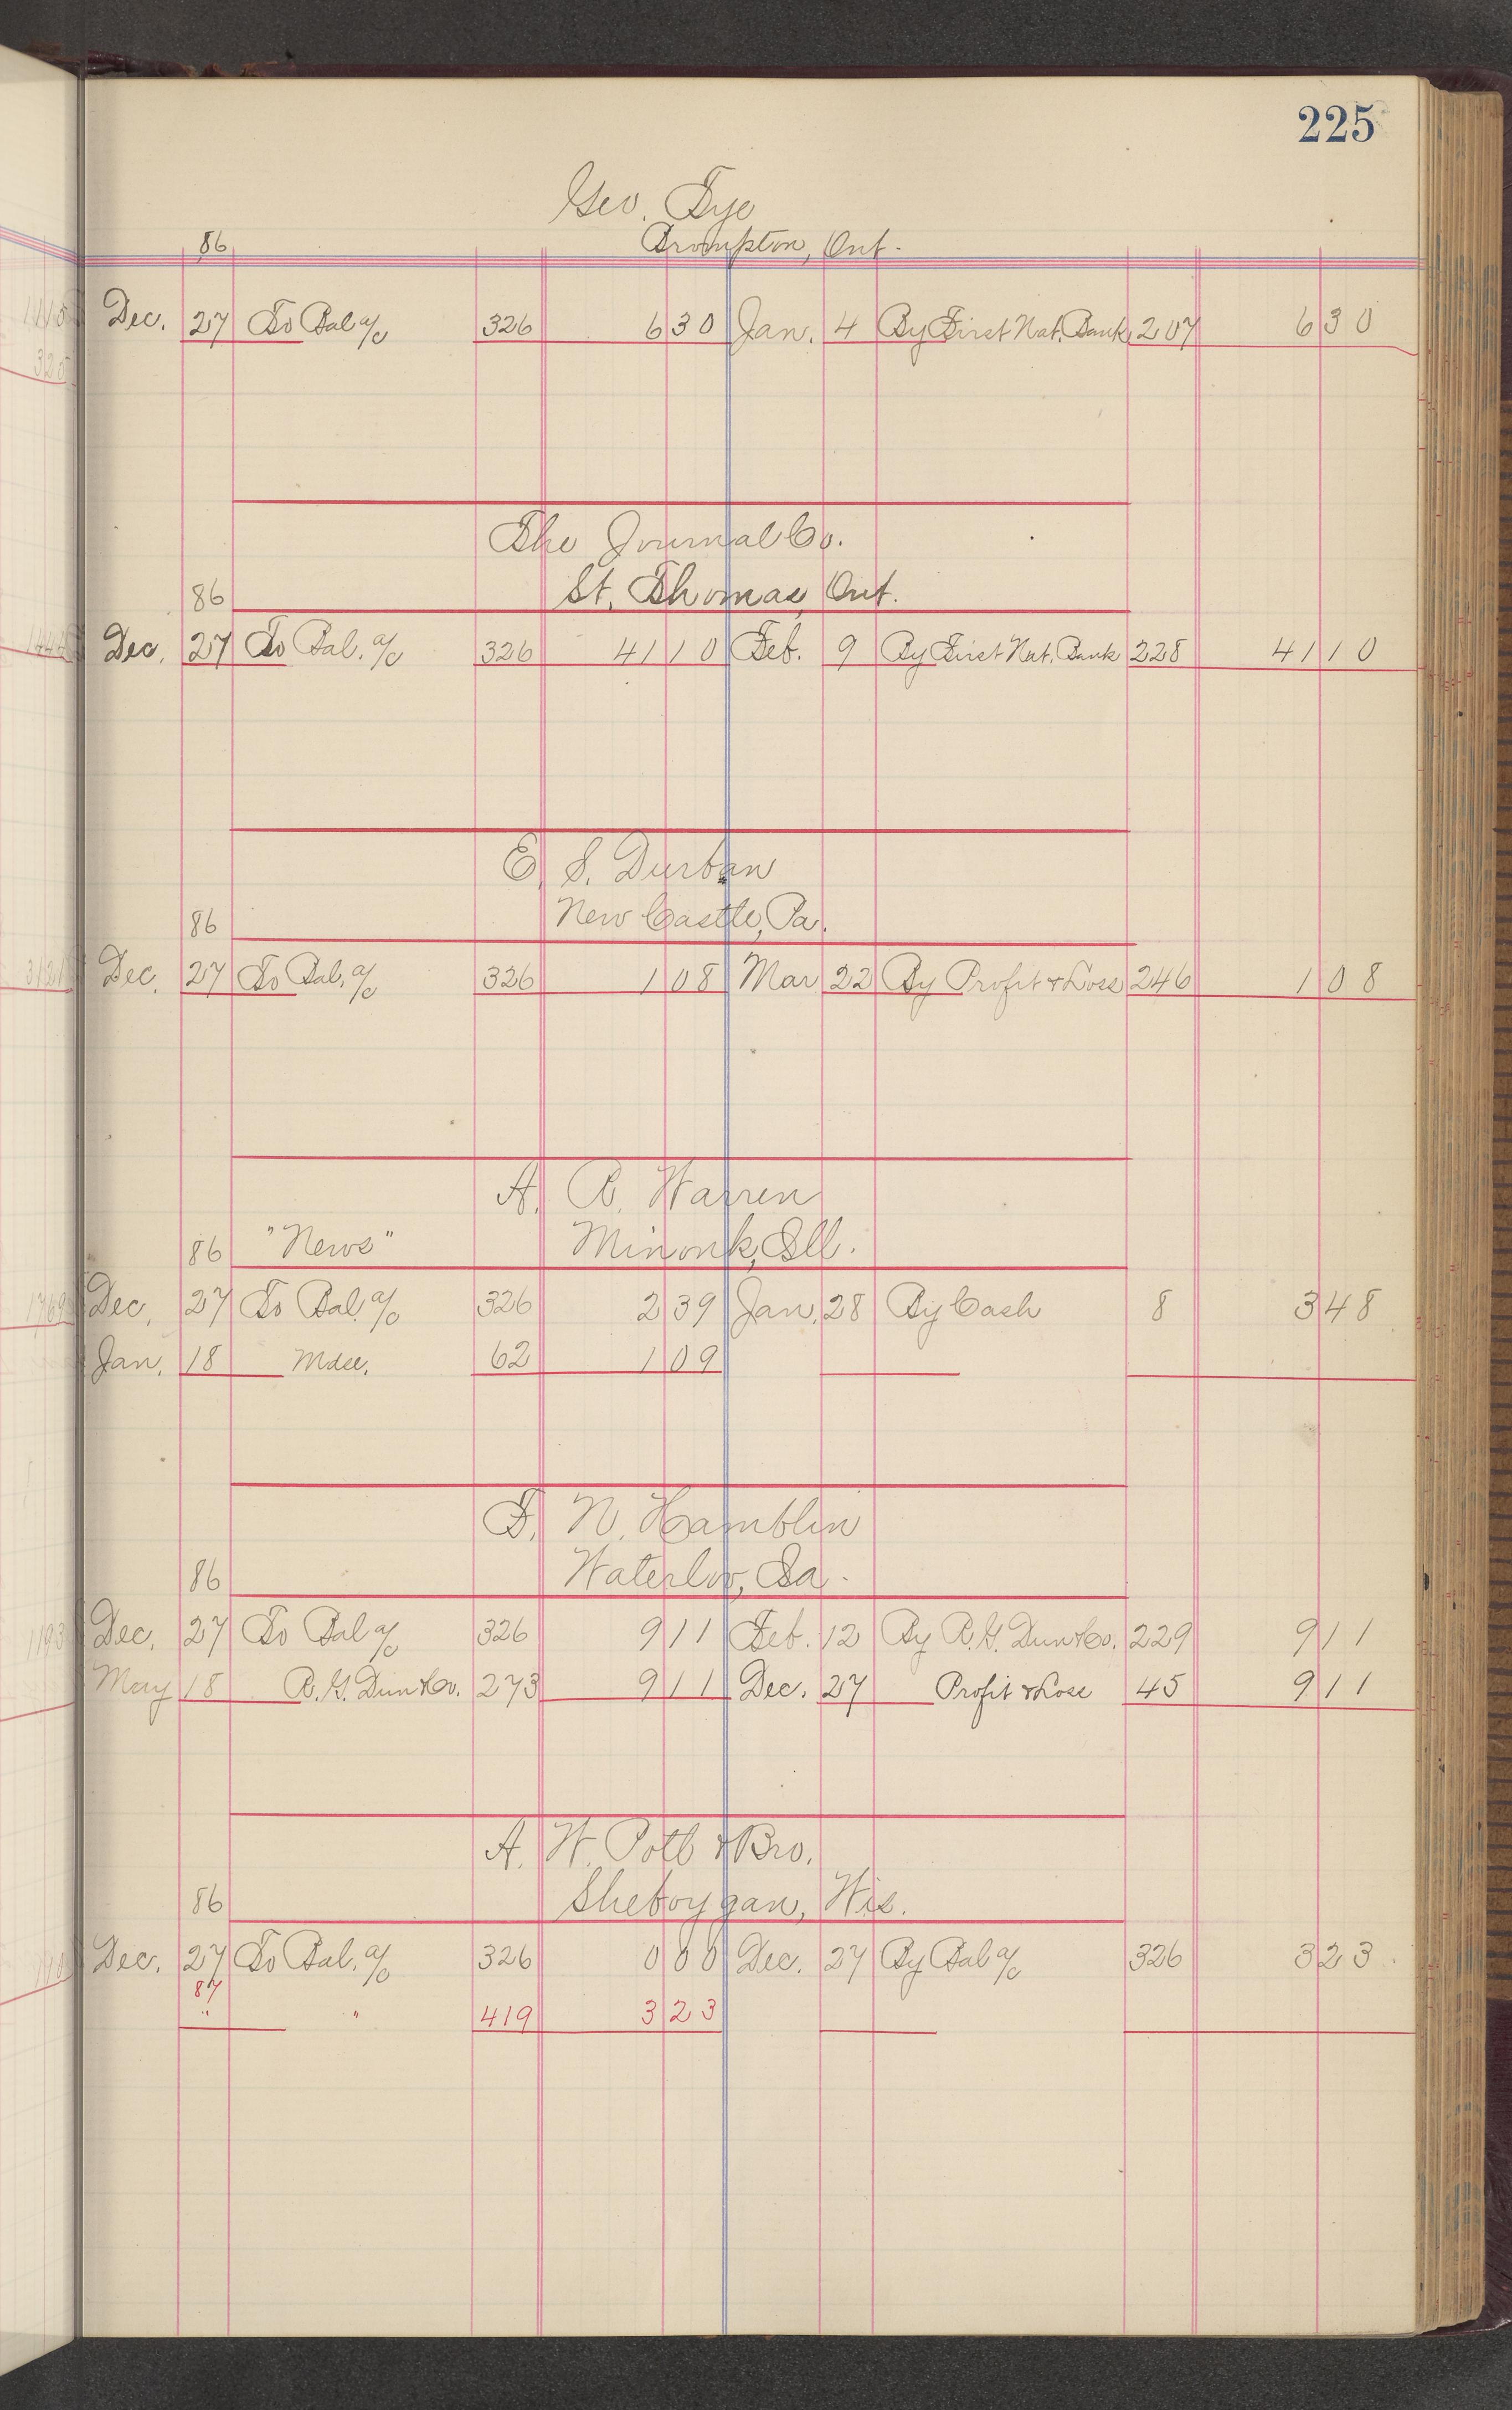 225
Geo. Tye
86 Brompton, Ont.
Dec. 27 To Bal a/c 326 6 30 Jan. 4 By First Nat. Bank 207 6 30
The Journal Co.
86 St. Thomas, Ont.
Dec. 27 To Bal. a/c 326 41 10 Feb. 9 By First Nat. Bank 228 41 10
E. S. Durban
86 New Castle, Pa.
Dec. 27 To Bal. a/c 326 1 08 Mar 22 By Profit & Loss 246 1 08
A. R. Warren
86 "News" Minonk, Ill.
Dec. 27 To Bal. a/c 326 2 39 Jan. 28 By Cash 8 3 48
Jan. 18 Mdse. 62 1 09
F. N. Hamblin
86 Waterloo, Ia.
Dec. 27 To Bal a/c 326 9 11 Feb. 12 By R. G. Dun & Co. 229 9 11
May 18 R. G. Dun & Co. 273 9 11 Dec. 27 Profit & Loss 45 9 11
A. W. Pott & Bro.
86 Sheboygan, Wis.
Dec. 27 To Bal. a/c 326 0 00 Dec. 27 By Bal a/c 326 3 23
87
" " 419 3 23